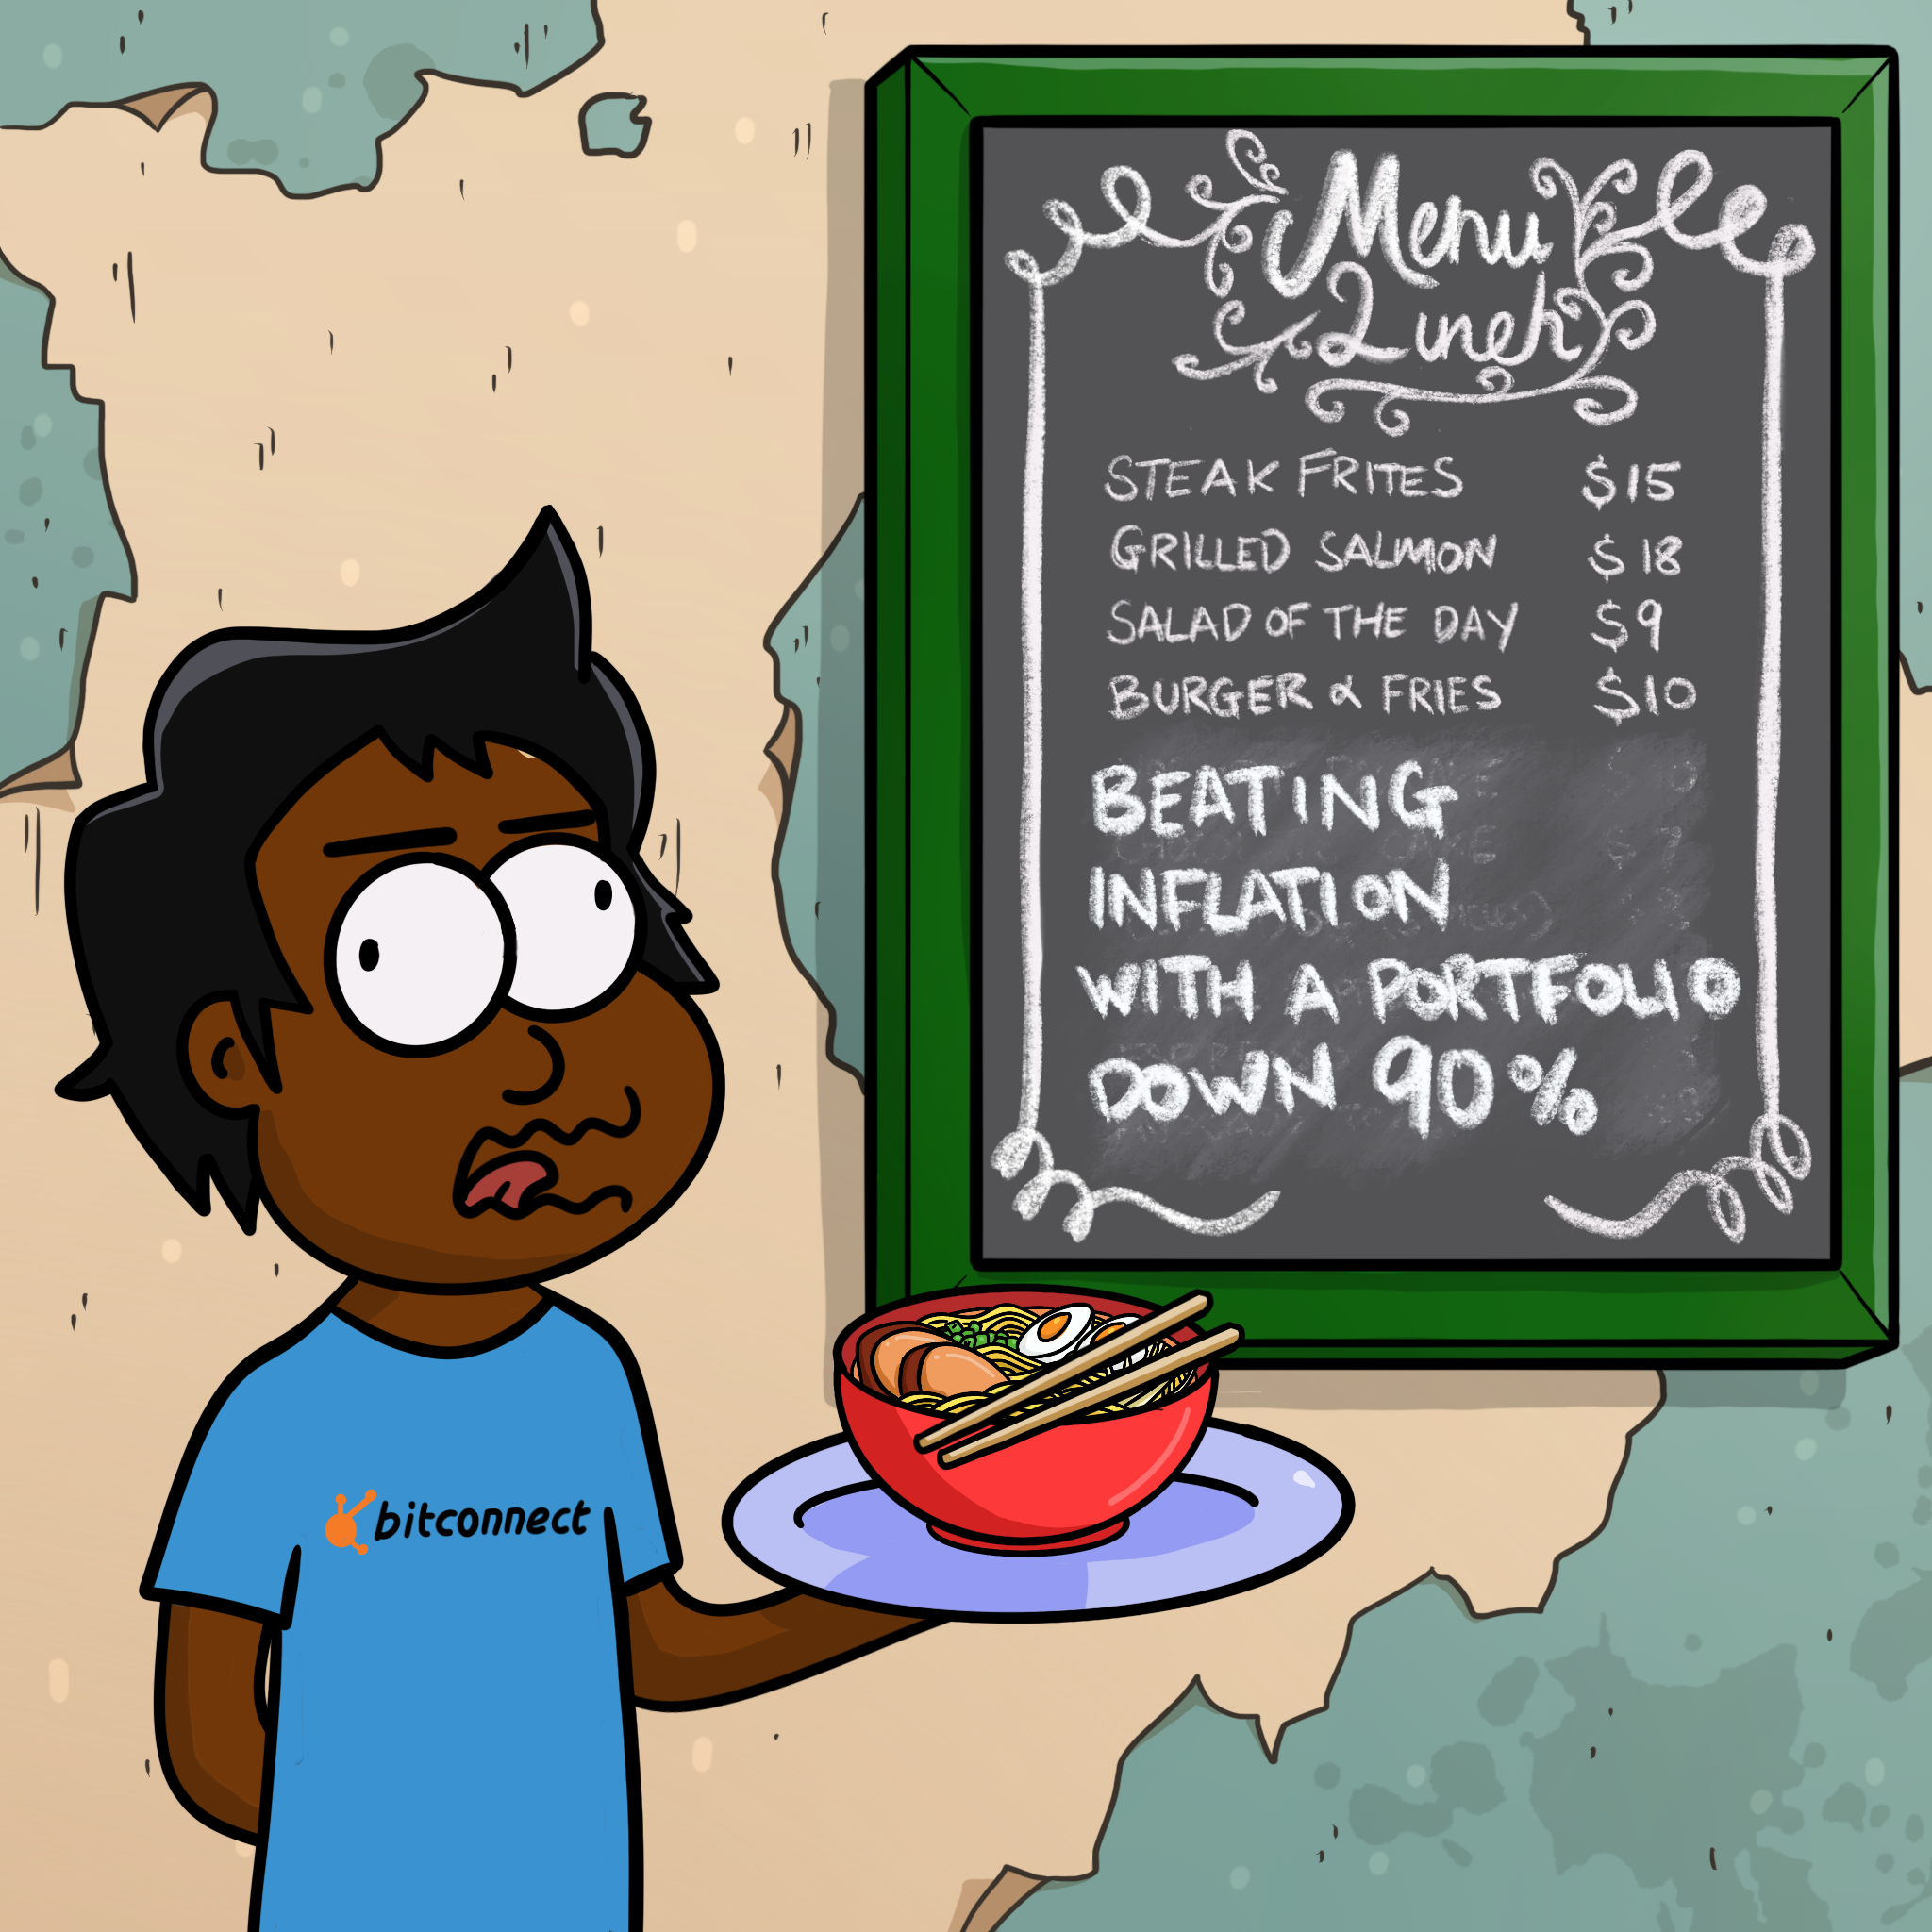 Menu
Lunch
STEAK FRITES $15
GRILLED SALMON $18
SALAD OF THE DAY $9
BURGER & FRIES $10
BEATING
INFLATION
WITH A PORTFOLIO
DOWN 90%
bitconnect